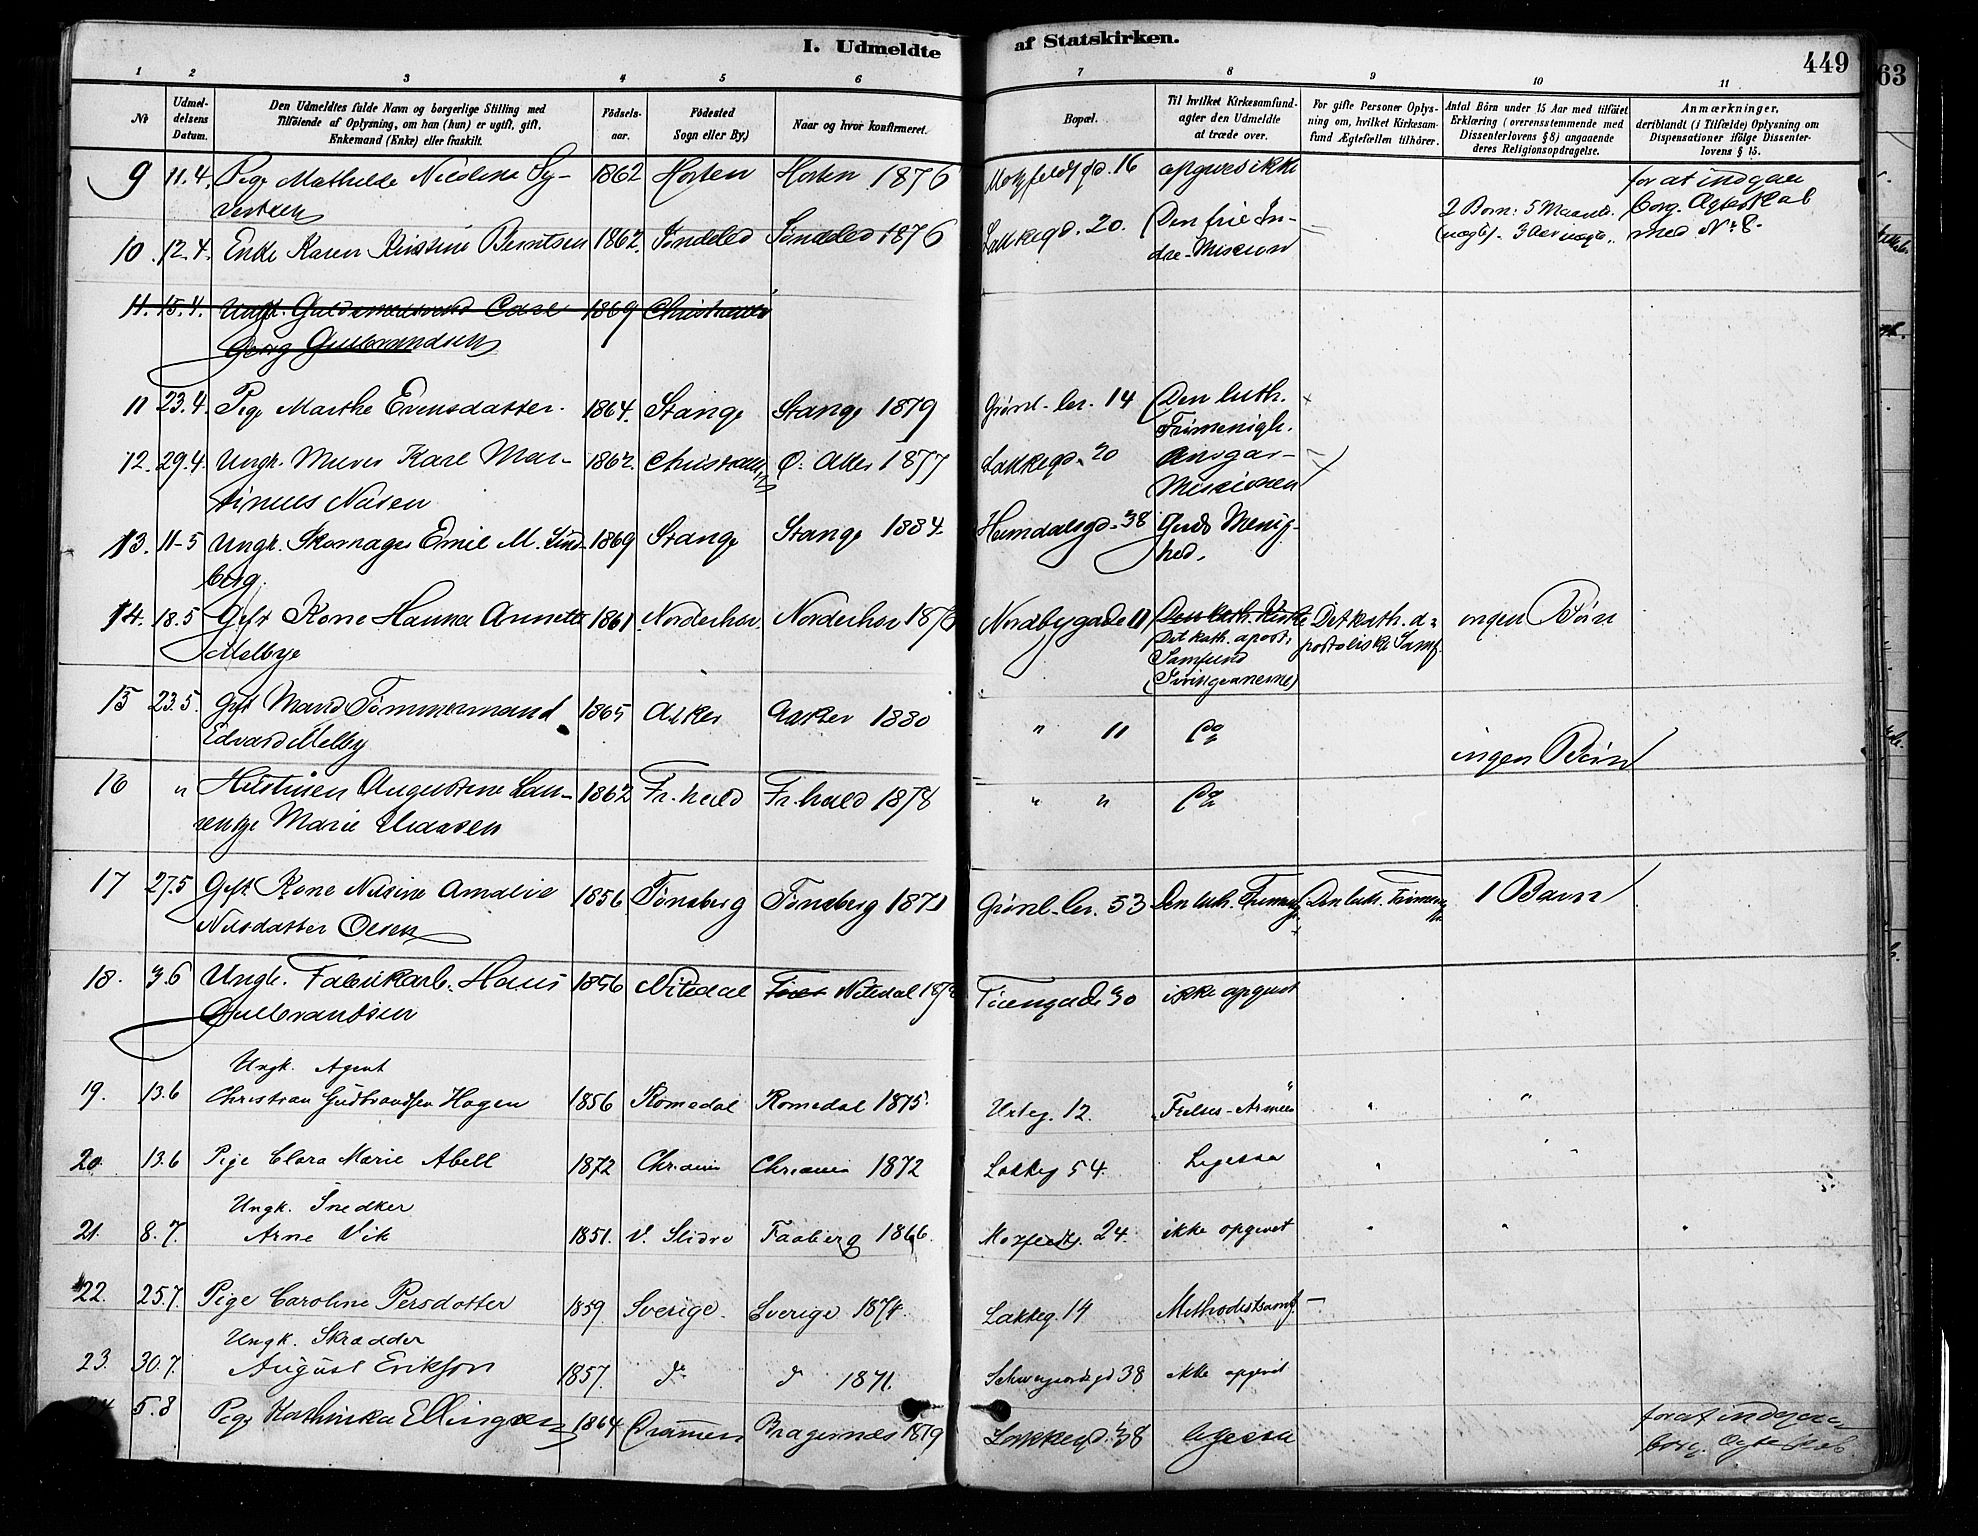 I. Udmeldte af Statskirken.
449
63
1 2 3 4 5 6 7 8 9 10 11
№
Udmel-
delsens
Datum.
Den Udmeldtes fulde Navn og borgerlige Stilling med
Tilföiende af Oplysning, om han (hun) er ugift, gift,
Enkemand (Enke) eller fraskilt.
Födsels-
aar.
Födested
Sogn eller By)
Naar og hvor konfirmeret.
Bopæl.
Til hvilket Kirkesamfund-
agter den Udmeldte
at træde over.
For gifte Personer Oplys-
ning om, hvilket Kirkesam-
fund Ægtefællen tilhörer.
Antal Börn under 15 Aar med tilföiet
Erklæring (overensstemmende med
Dissenterlovens § 8) angaaende
deres Religionsopdragelse.
Anmærkninger,
deriblandt (i Tilfælde) Oplysning om
Dispensationer ifölge Dissenter-
lovens § 15.
9 11.4. Pige Mathilde Nicoline Sy- 1862 Horten Horten 1876 Motzfeldtsgd. 16 opgives ikke for at indgaa
vertsen borg. Ægteskab
med N: 8.
10. 12.4. Enke Karen Kristine Berntsen 1862. Søndeled Søndeled 1876 Lakkegd. 20. Den frie In- 2 Børn: 5 Maaneder
dre-Mission 3 Aar
11. 15.4. Ungk. Guldsmedsvend Carl 1869 Christiania
Georg Gulbrandsen
11 23.4. Pige Marthe Evensdatter. 1864. Stange Stange 1879 Grønl.-ler. 14 Den luth.
Frimenigh.
12. 29.4. Ungk. Murer Karl Mar- 1862. Christiania Ø. Aker 1877 Lakkegd. 20 Ansgar-
tinius Nilsen Missionen
13. 11-5 Ungk. Skomager Emil M. Lind- 1869 Stange Stange 1884. Heimdalsgd. 38 Guds Menig-
berg. hed.
14. 18.5 Gift Kone Hanna Annette 1861 Norderhov. Norderhov Nordbygade 11 Den luth. Kirke Det kath. a- ingen Børn
Melbye Det kath. apost. postoliske Samf.
Samfund
(Irvingeanerne)
15 23.5. Gift Mand Tømmermand 1865 Aker Aker 1880 " 11 do
Edvard Melby ingen Børn
16 " Hustruen Augustine Lau- 1862 Fr.hald Fr.hald 1878 " " do
rentze Marie
17 27.5 Gift Kone Nilsine Amalie 1856 Tønsberg Tønsberg 1871 Grønl.-ler. 53 Den luth. Frimenigh. Den luth. Frimenigh. 1 Barn
Nilsdatter Olsen
18. 3.6 Ungk. Fabrikarb. Hans 1856 Nitedal Nitedal Tøiengade 30 ikke opgivet
Gulbrandsen
Ungk. Agent
19. 13.6 Christian Gudbrandsen Hagen 1856 Romedal Romedal 1875. Urteg. 12. Frelses-Armeen " "
20. 13.6 Pige Clara Marie Abell 1872 Chr.ania Chr.ania 1872 Lakkeg 54. Ligesaa " "
Ungk. Snedker
21. 8.7. Arne Vik 1851. V. Slidre Faaberg 1866. Motzfeldtsg. 24. ikke opgivet " " "
22. 25.7. Pige Caroline Persdotter 1859. Sverige. Sverige 1874. Lakkeg. 14 Methodistsamf. —
Ungk. Skrædder
23. 30.7. August Erikson 1857. do do 1871. Schweigaardsgd 38 ikke opgivet
5.8 Pige Kathinka Ellingsen 1864 Drammen Bragernæs 1879 Lakkegd. 38 ligesaa for at indgaa
borg. Ægteskab